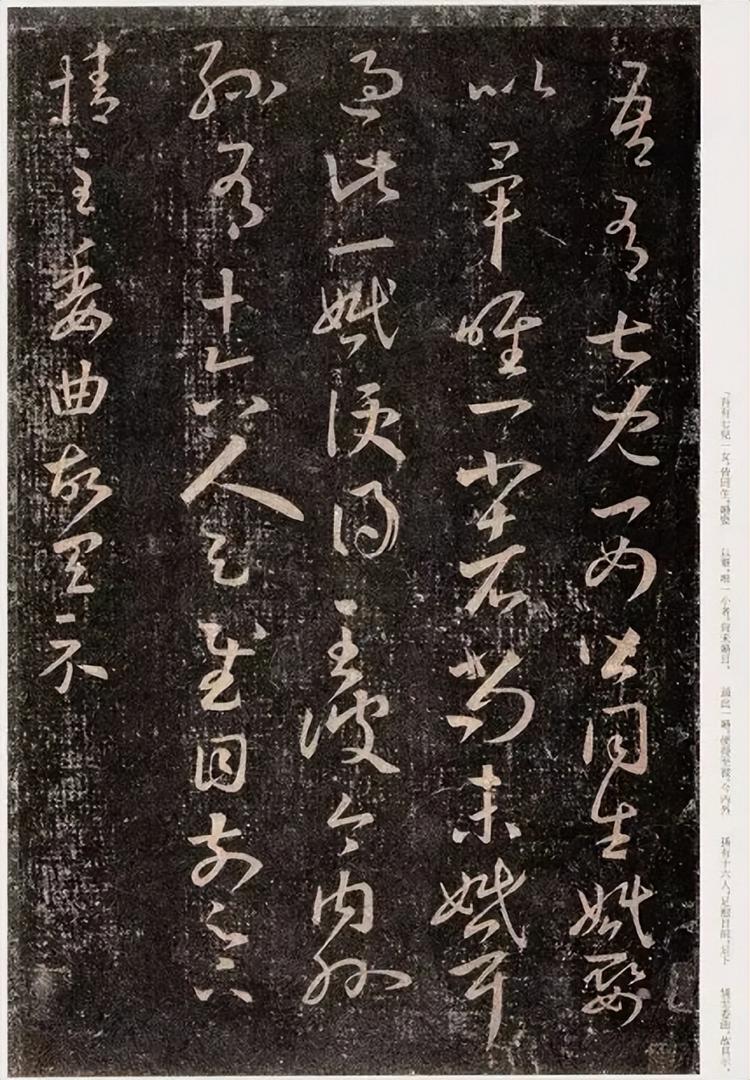 吾有七儿一女皆同生婚娶
以毕唯一小者尚未婚耳
过此一婚便得至彼今内外
孙有十六人足慰目前足下
情至委曲故具示
吾有七兒一女，皆同生，婚娶 以畢，唯一小者，尚未婚耳。 過此一婚，便得至彼。今內外 孫有十六人，足慰目前。足下 情至委曲，故具示。